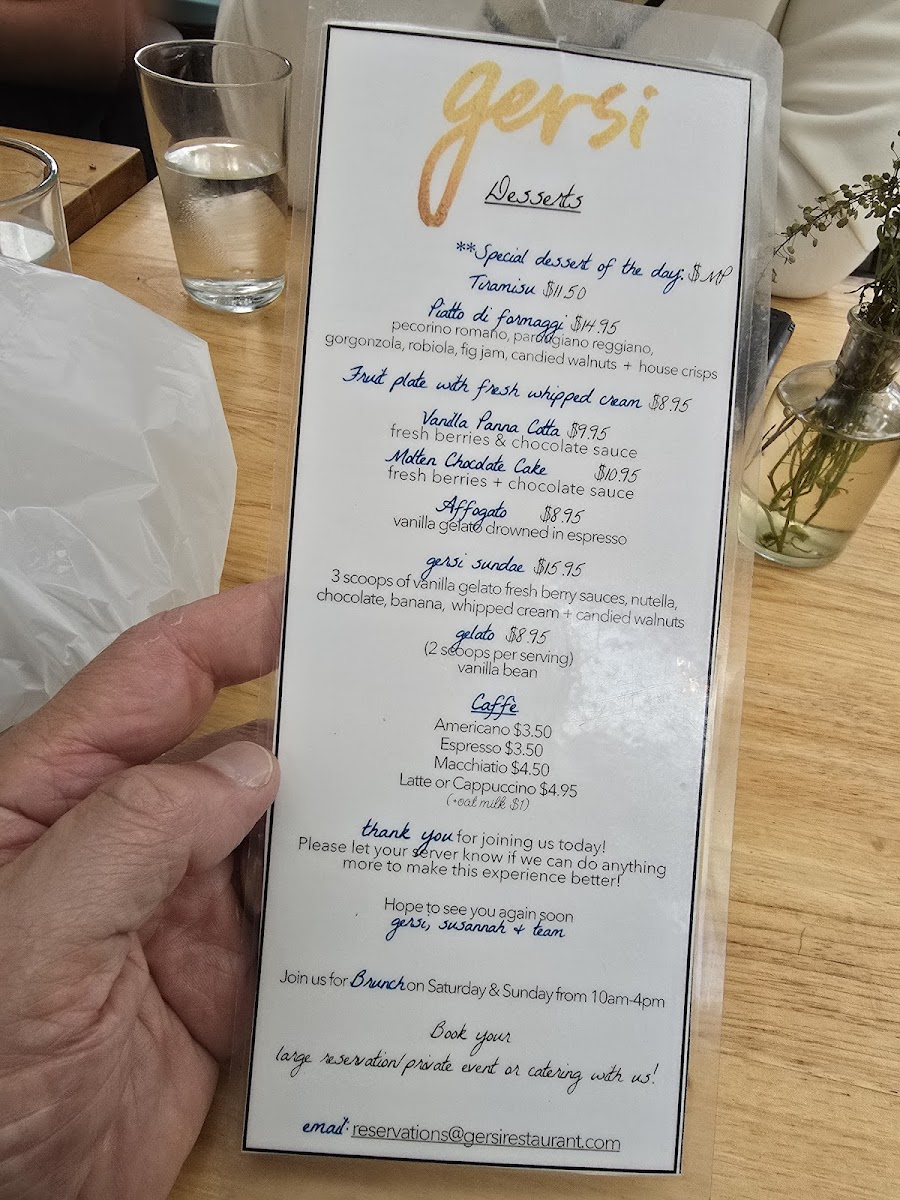 gersi
Desserts
**Special dessert of the day: $ MP
Tiramisu $11.50
Piatto di formaggi $14.95
pecorino romano, parmigiano reggiano,
gorgonzola, robiola, fig jam, candied walnuts + house crisps
Fruit plate with fresh whipped cream $8.95
Vanilla Panna Cotta $9.95
fresh berries & chocolate sauce
Molten Chocolate Cake $10.95
fresh berries + chocolate sauce
Affogato $8.95
vanilla gelato drowned in espresso
gersi sundae $15.95
3 scoops of vanilla gelato fresh berry sauces, nutella,
chocolate, banana, whipped cream + candied walnuts
gelato $8.95
(2 scoops per serving)
vanilla bean
Caffè
Americano $3.50
Espresso $3.50
Macchiatio $4.50
Latte or Cappuccino $4.95
(+oat milk $1)
thank you for joining us today!
Please let your server know if we can do anything
more to make this experience better!
Hope to see you again soon
gersi, susannah + team
Join us for Brunch on Saturday & Sunday from 10am-4pm
Book your
large reservation/private event or catering with us!
email: reservations@gersirestaurant.com